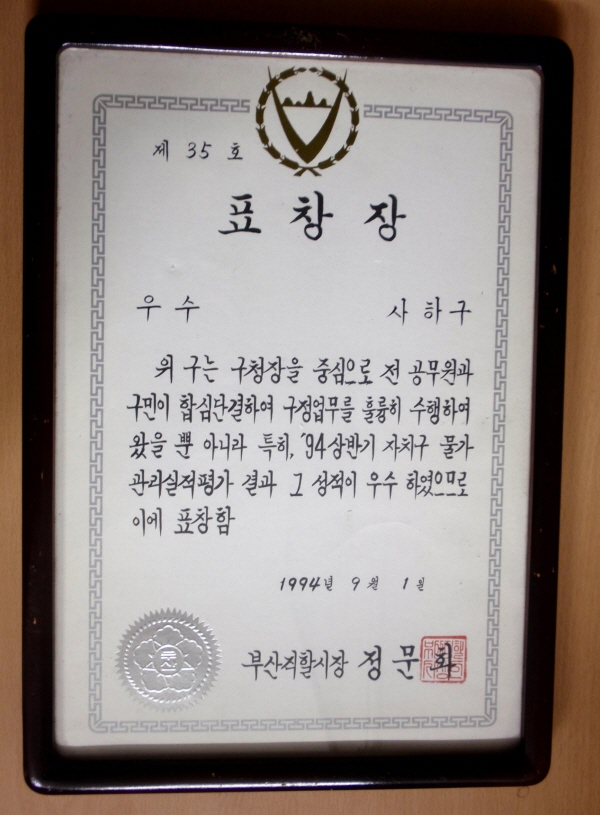 제 35 호
표 창 장
우 수 사 하 구
위 구는 구청장을 중심으로 전 공무원과
구민이 합심단결하여 구정업무를 훌륭히 수행하여
왔을 뿐 아니라 특히, '94 상반기 자치구 물가
관리실적평가 결과 그 성적이 우수 하였으므로
이에 표창함
1994년 9월 1일
부산직할시장 정 문 화